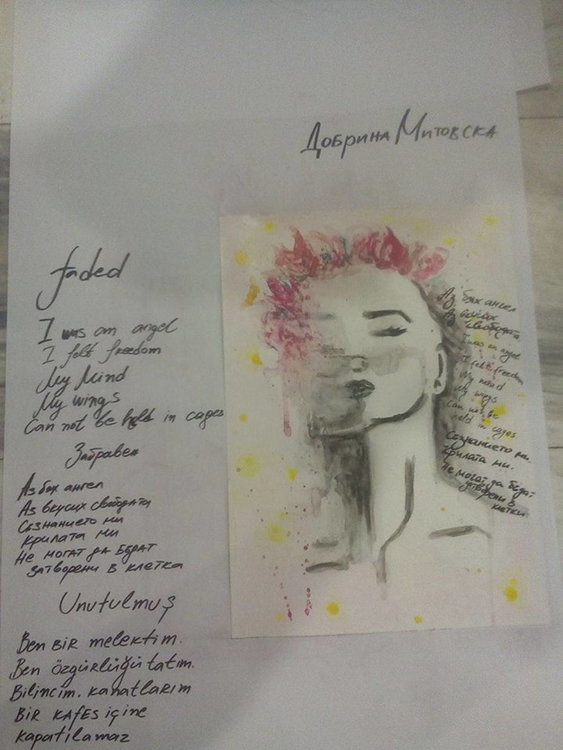 Добрина Митовска
faded
I was am angel
I felt freedom
My Mind
My wings
Can not be held in cages
Забравен
Аз бях ангел
Аз вкусих свободата
Съзнанието ми
крилата ми
Не могат да бъдат
затворени в клетка
Unutulmuş
Ben BİR melektim.
Ben özgürlüğü tatım.
Bilincim. kanatlarım
BİR KAfES içine
kapatılamaz
Аз бях ангел
Аз вкусих
свободата
I was an angel
I felt freedom
My mind
My wings
Can not be
held in cages
Съзнанието ми
Крилата ми.
Не могат да бъдат
затворени в
клетки